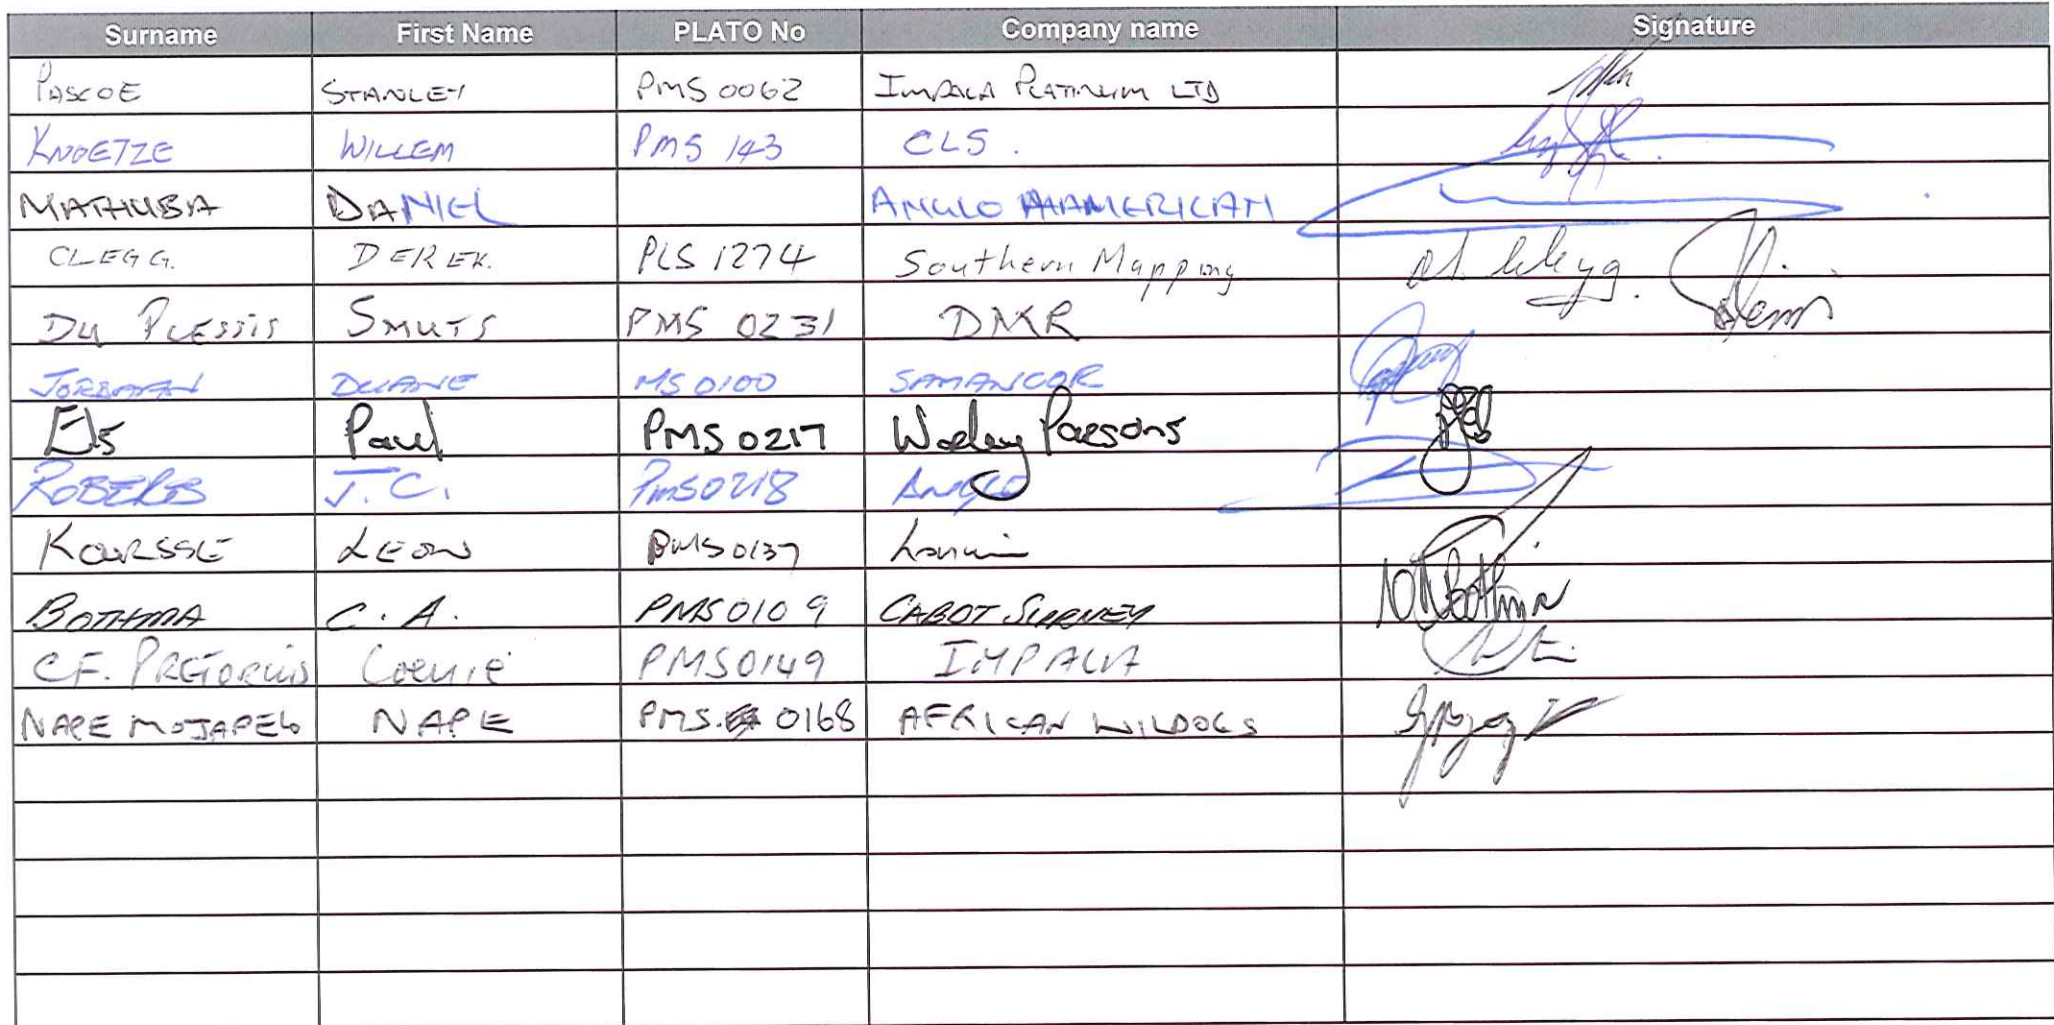 Surname First Name PLATO No Company name Signature
PASCOE STANLEY PMS 0062 IMPALA PLATINUM LTD
KNOETZE WILLEM PMS 143 CLS.
MATHUBA DANIEL ANGLO AMERICAN
CLEGG. DEREK. PLS 1274 Southern Mapping
DU PLESSIS SMUTS PMS 0231 DMR
DUANE MS 0100 SAMANCOR
Els Paul PMS 0217 Worley Parsons
ROBERTS J.C. PMS0218 ANGLO
LEON PMS0137 Lonmin
BOTHMA C.A. PMS0109 CABOT SURVEY
C.F. PRETORIUS Coenie PMS0149 IMPALA
NAPE MOJAPELO NAPE PMS 0168 AFRICAN WILDOGS